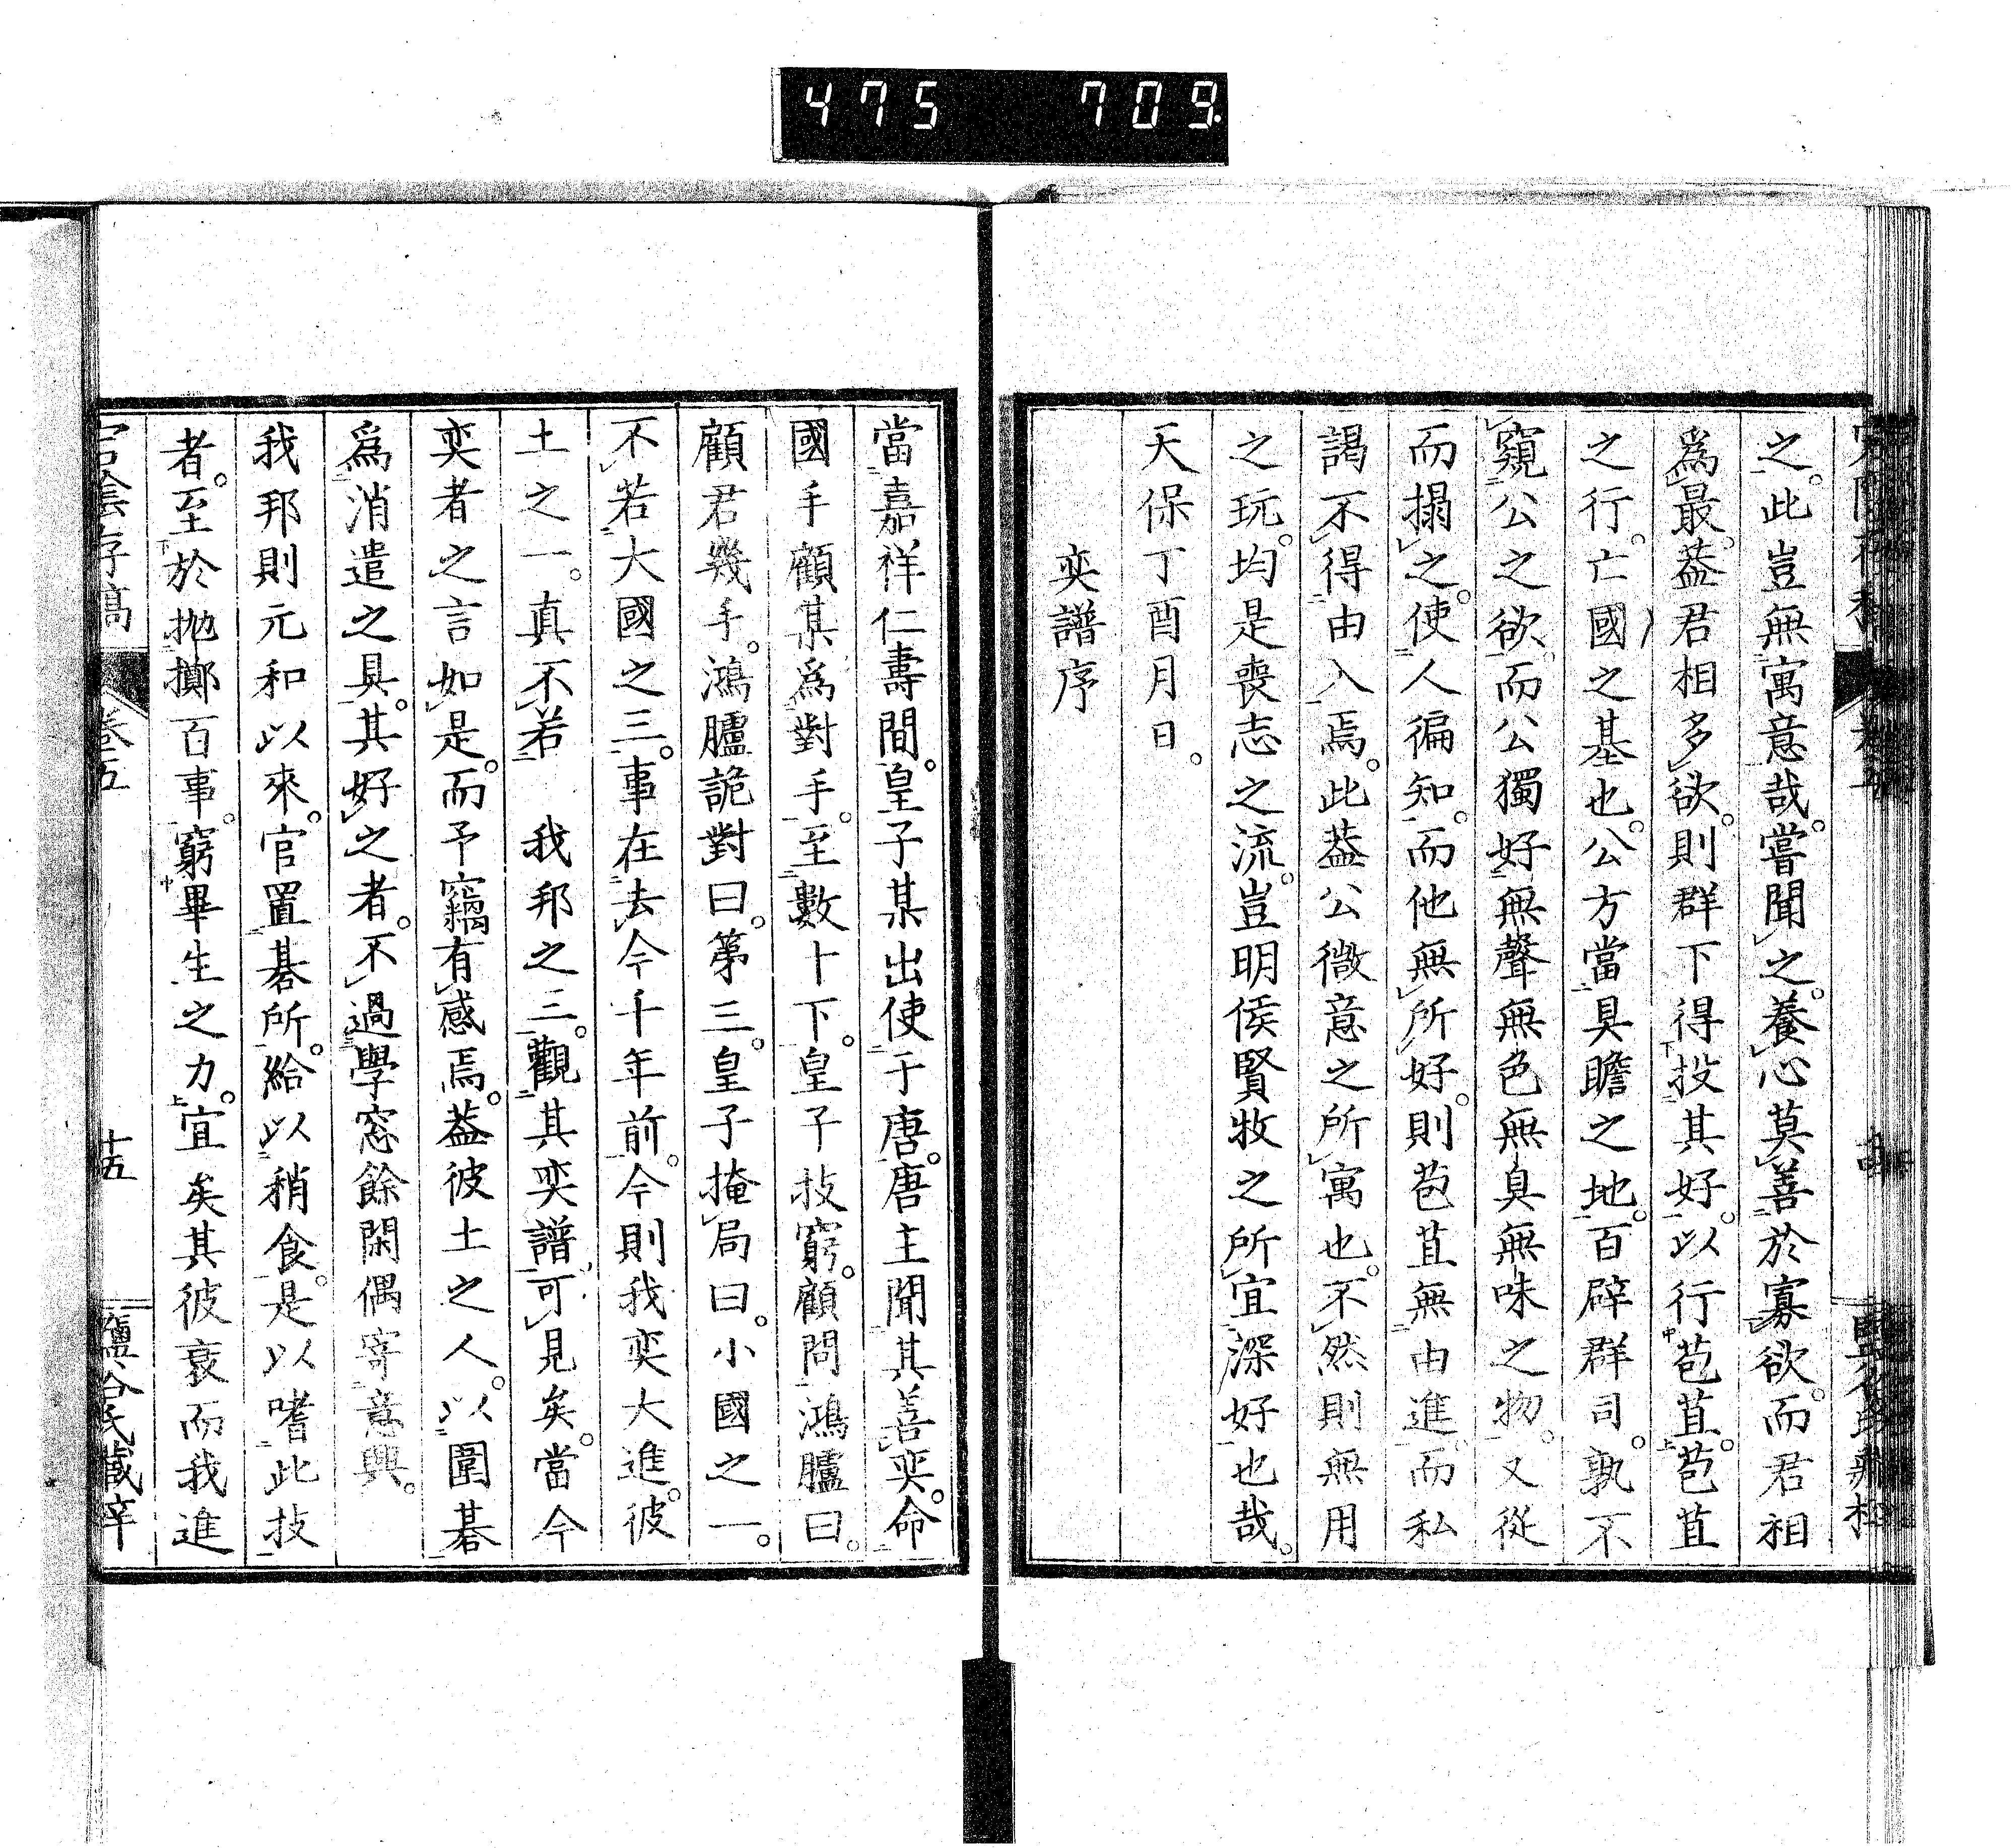 475 709.
之。此豈無寓意哉。嘗聞之。養心莫善於寡欲。而君相
爲最。葢君相多欲。則群下得投其好。以行苞苴。苞苴
之行。亡國之基也。公方當具瞻之地。百辟群司。孰不
窺公之欲。而公獨好無聲無色無臭無味之物。又從
而搨之。使人徧知。而他無所好。則苞苴無由進。而私
謁不得由入焉。此葢公微意之所寓也。不然則無用
之玩。均是喪志之流。豈明侯賢牧之所宜深好也哉。
天保丁酉月日。
奕譜序
當嘉祥仁壽間。皇子某出使于唐。唐主聞其善奕。命
國手顧某爲對手。至數十下。皇子技窮。顧問鴻臚曰。
顧君幾手。鴻臚詭對曰。第三。皇子掩局曰。小國之一。
不若大國之三。事在去今千年前。今則我奕大進。彼
土之一。真不若 我邦之三。觀其奕譜可見矣。當今
奕者之言如是。而予竊有感焉。葢彼土之人。以圍棊
爲消遣之具。其好之者。不過學窓餘閑偶寄意興。
我邦則元和以來。官置棊所。給以稍食。是以嗜此技
者。至於抛擲百事。窮畢生之力。宜矣其彼衰而我進
宕陰存稿 卷五 十五 鹽谷氏藏梓